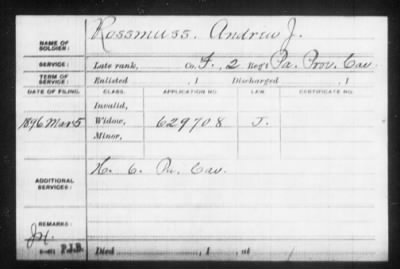 NAME OF SOLDIER: Rossmuss. Andrew J.
SERVICE: Late rank, Co. F., 2 Reg't Pa. Prov. Cav.
TERM OF SERVICE: Enlisted , 1 Discharged , 1
DATE OF FILING. CLASS. APPLICATION NO. LAW. CERTIFICATE NO.
Invalid,
1896 Mar 5 Widow, 629708 J.
Minor,
ADDITIONAL SERVICES: Pa. Cav.
REMARKS:
P.I.B. Died , 1 , at